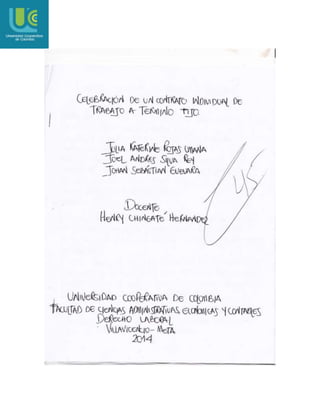 Universidad Cooperativa
de Colombia
CELEBRACIÓN DE UN CONTRATO INDIVIDUAL DE
TRABAJO A TERMINO FIJO
JULIA KATERINE ROJAS UMAÑA
JOEL ANDRES SILVA REY
JOHAN SEBASTIAN GUEVARA
DOCENTE
HENRY CHINGATE HERNANDEZ
45
UNIVERSIDAD COOPERATIVA DE COLOMBIA
FACULTAD DE CIENCIAS ADMINISTRATIVAS, ECONOMICAS Y CONTABLES
DERECHO LABORAL
VILLAVICENCIO - META
2014